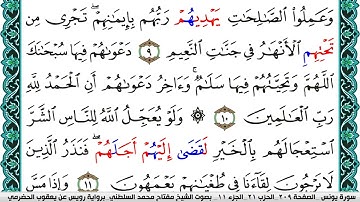 وَعَمِلُوا۟ ٱلصَّٰلِحَٰتِ يَهْدِيهُمْ رَبُّهُم بِإِيمَٰنِهِمْ ۖ تَجْرِى مِن
تَحْتِهِمُ ٱلْأَنْهَٰرُ فِى جَنَّٰتِ ٱلنَّعِيمِ ٩ دَعْوَىٰهُمْ فِيهَا سُبْحَٰنَكَ
ٱللَّهُمَّ وَتَحِيَّتُهُمْ فِيهَا سَلَٰمٌ ۚ وَءَاخِرُ دَعْوَىٰهُمْ أَنِ ٱلْحَمْدُ لِلَّهِ
رَبِّ ٱلْعَٰلَمِينَ ١٠ ۞ وَلَوْ يُعَجِّلُ ٱللَّهُ لِلنَّاسِ ٱلشَّرَّ
ٱسْتِعْجَالَهُم بِٱلْخَيْرِ لَقَضَىٰ إِلَيْهُمْ أَجَلَهُمْ ۖ فَنَذَرُ ٱلَّذِينَ
لَا يَرْجُونَ لِقَآءَنَا فِى طُغْيَٰنِهِمْ يَعْمَهُونَ ١١ وَإِذَا مَسَّ
سورة يونس الصفحة ٢٠٩ الحزب ٢١ الجزء ١١ بصوت الشيخ مفتاح محمد السلطني برواية رويس عن يعقوب الحضرمي